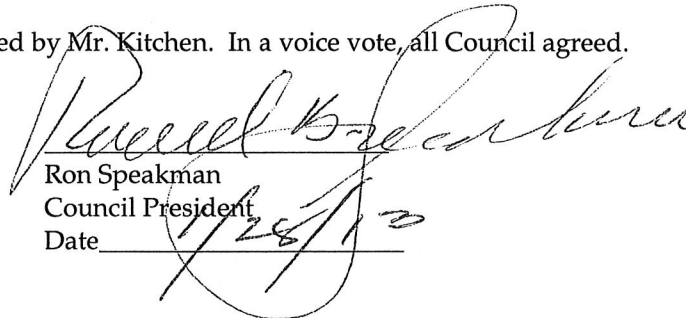 ed by Mr. Kitchen. In a voice vote, all Council agreed.
Ron Speakman
Council President
Date